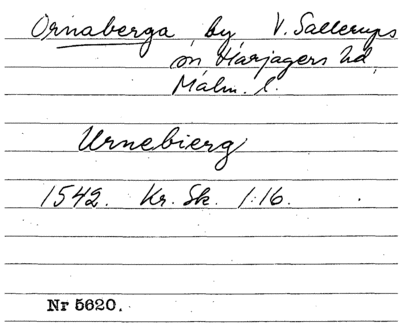 Ornaberga, by, V. Sallerups
sn Harjagers hd,
Malm. l.
Urnebierg
1542. Kr. Sk. 1:16.
Nr 5620.